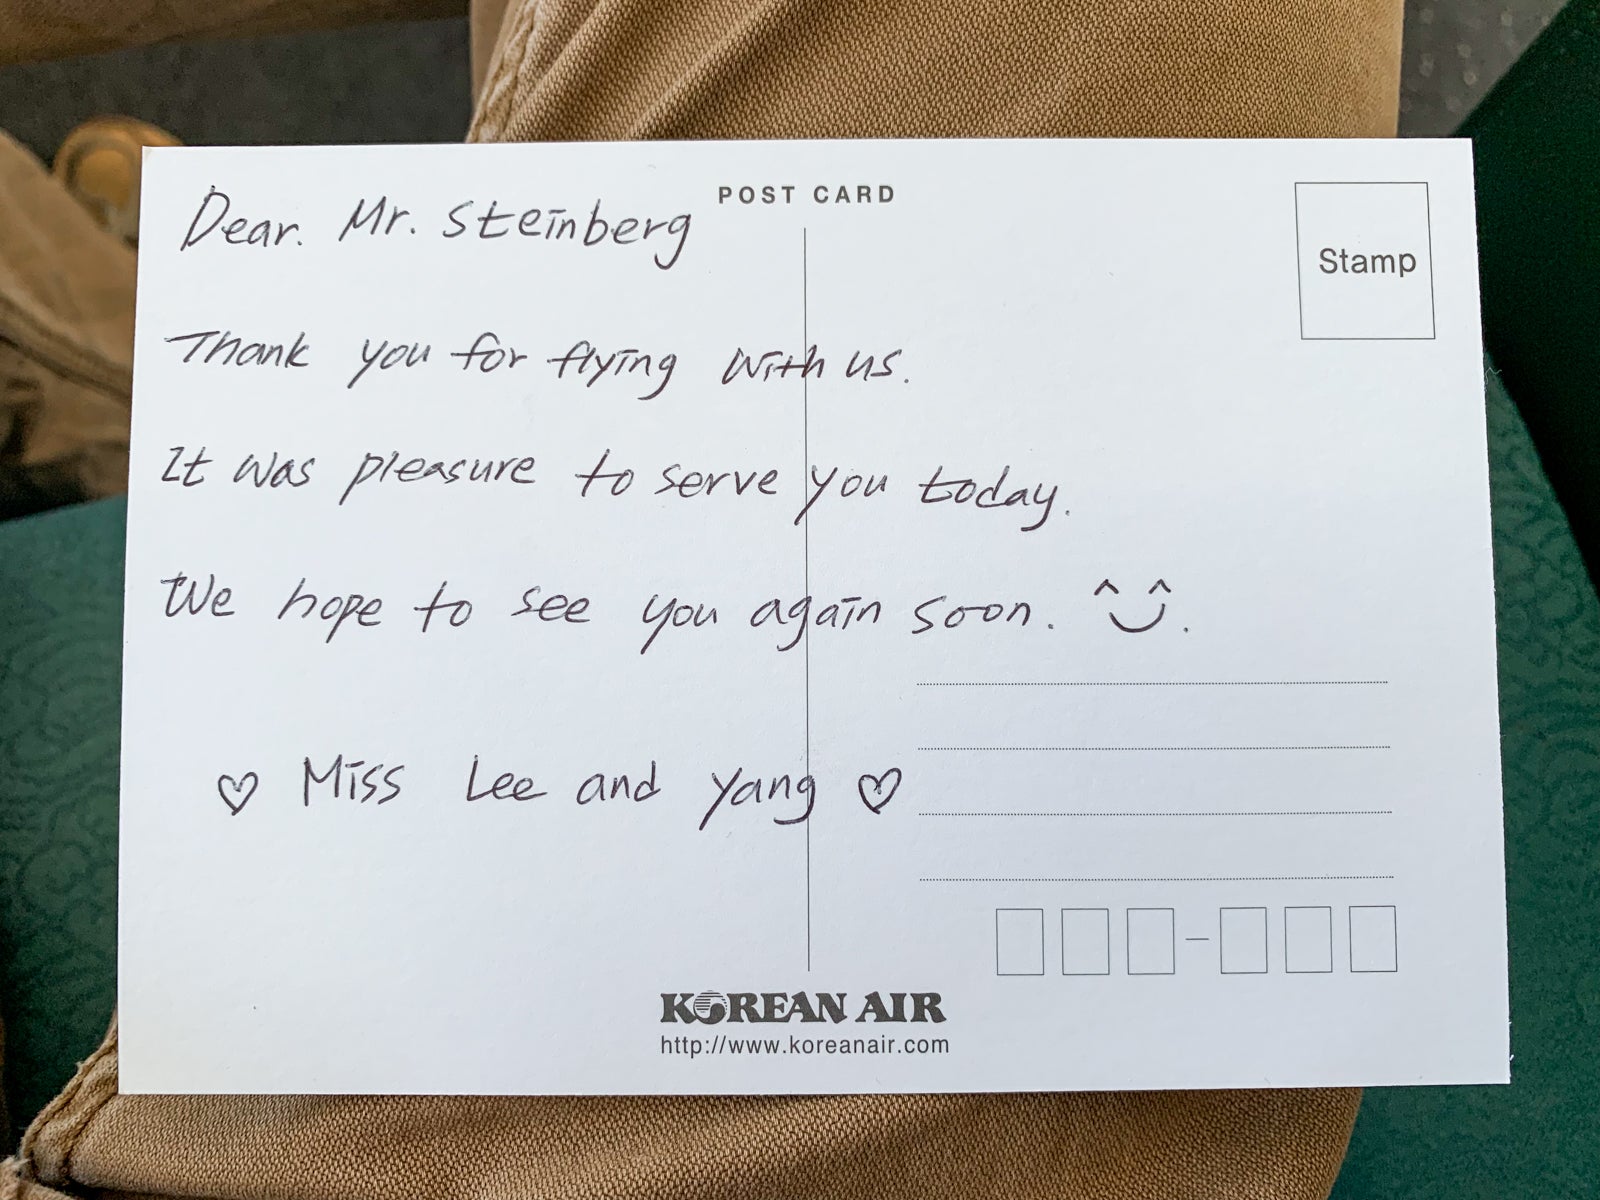 POST CARD
Stamp
Dear. Mr. Steinberg
Thank you for flying with us.
It was pleasure to serve you today.
We hope to see you again soon. ^‿^.
♡ Miss Lee and Yang ♡
KOREAN AIR
http://www.koreanair.com